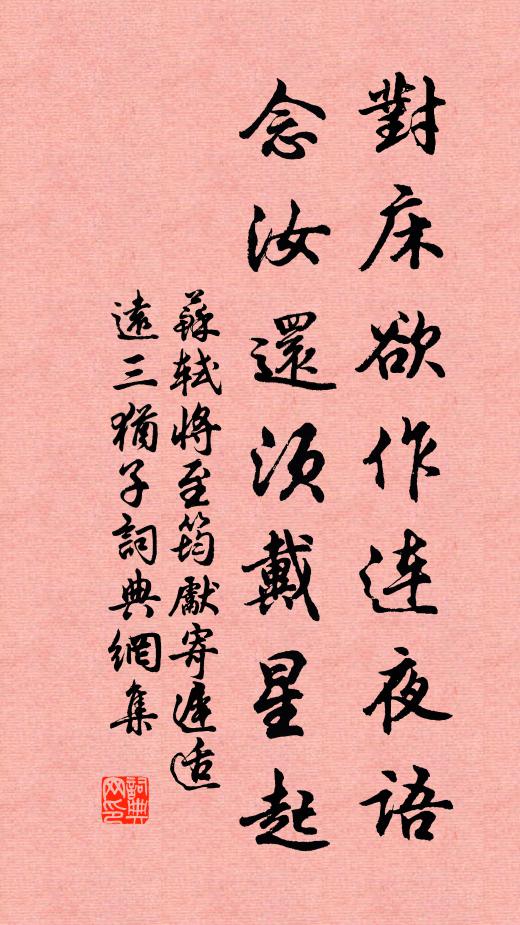 對床欲作連夜語
念汝還須戴星起
蘇軾將至筠獻寄遲适
遠三猶子詞典網集
詞典网印